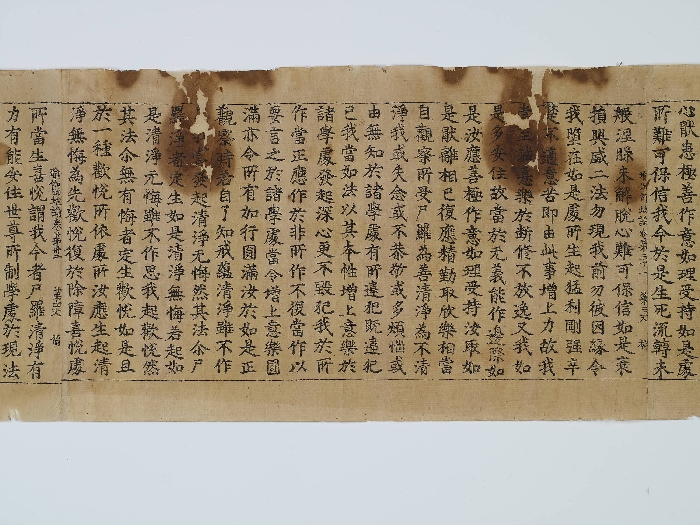 心散患極善作意受持如是處
所難可保信我今於是生死流轉未
般涅縣未解脫心難可保信如是衰
損興盛二法勿現我前勿彼因緣令
我墮在如是處所生起猛利剛強辛
楚不適意苦即由此事增上力故我
樂於斷修不放逸又我如
是多安住故當於无義能作邊際如
是汝應善極作意如理受持汝既如
是厭離相已復應精勤取欣樂相當
自觀察所受尸羅為善清淨為不清
淨我或失念或不恭敬或多煩惱或
由無知於諸學處有所違犯既違犯
已我當如法以其本性增上意樂於
諸學處發起深心更不毀犯我於所
作當正應作於非所作不復當作以
要言之於諸學處當令增上意樂圓
滿亦令所有加行圓滿汝於如是正
觀察時若自了知戒蘊清淨雖不作
發起清淨无悔然其法尒尸
羅淨者定生如是清淨無悔若起如
是清淨无悔雖不作思我起歡悅然
其法尒無有悔者定生歡悅如是且
於一種歡悅所依處所汝應生起清
淨無悔為先歡悅復於除障喜悅處
所當生喜悅謂我今者尸羅清淨有
力有能安住世尊所制學處於現法